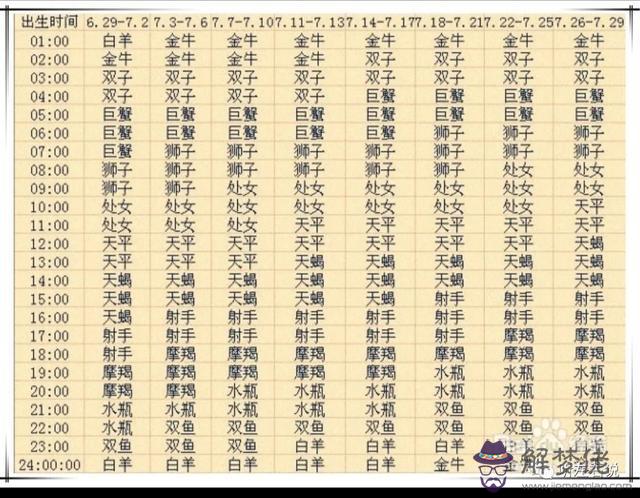 出生时间 6.29-7.2 7.3-7.6 7.7-7.10 7.11-7.13 7.14-7.17 7.18-7.21 7.22-7.25 7.26-7.29
01:00 白羊 金牛 金牛 金牛 金牛 金牛 金牛 金牛
02:00 金牛 金牛 金牛 金牛 双子 双子 双子 双子
03:00 双子 双子 双子 双子 双子 双子 双子 双子
04:00 双子 双子 双子 双子 巨蟹 巨蟹 巨蟹 巨蟹
05:00 巨蟹 巨蟹 巨蟹 巨蟹 巨蟹 巨蟹 巨蟹 巨蟹
06:00 巨蟹 巨蟹 巨蟹 巨蟹 巨蟹 狮子 狮子 狮子
07:00 巨蟹 狮子 狮子 狮子 狮子 狮子 狮子 狮子
08:00 狮子 狮子 狮子 狮子 狮子 狮子 处女 处女
09:00 狮子 狮子 处女 处女 处女 处女 处女 处女
10:00 处女 处女 处女 处女 处女 处女 处女 天平
11:00 处女 处女 处女 天平 天平 天平 天平 天平
12:00 天平 天平 天平 天平 天平 天平 天平 天蝎
13:00 天平 天平 天平 天蝎 天蝎 天蝎 天蝎 天蝎
14:00 天蝎 天蝎 天蝎 天蝎 天蝎 天蝎 天蝎 天蝎
15:00 天蝎 天蝎 天蝎 天蝎 天蝎 射手 射手 射手
16:00 天蝎 射手 射手 射手 射手 射手 射手 射手
17:00 射手 射手 射手 射手 射手 射手 摩羯 摩羯
18:00 射手 摩羯 摩羯 摩羯 摩羯 摩羯 摩羯 摩羯
19:00 摩羯 摩羯 摩羯 摩羯 摩羯 水瓶 水瓶 水瓶
20:00 摩羯 摩羯 水瓶 水瓶 水瓶 水瓶 水瓶 水瓶
21:00 水瓶 水瓶 水瓶 水瓶 水瓶 双鱼 双鱼 双鱼
22:00 水瓶 双鱼 双鱼 双鱼 双鱼 双鱼 双鱼 双鱼
23:00 双鱼 双鱼 双鱼 白羊 白羊 白羊
24:00:00 白羊 白羊 白羊 白羊 白羊 金牛
解梦佬
www.jiemenglao.com